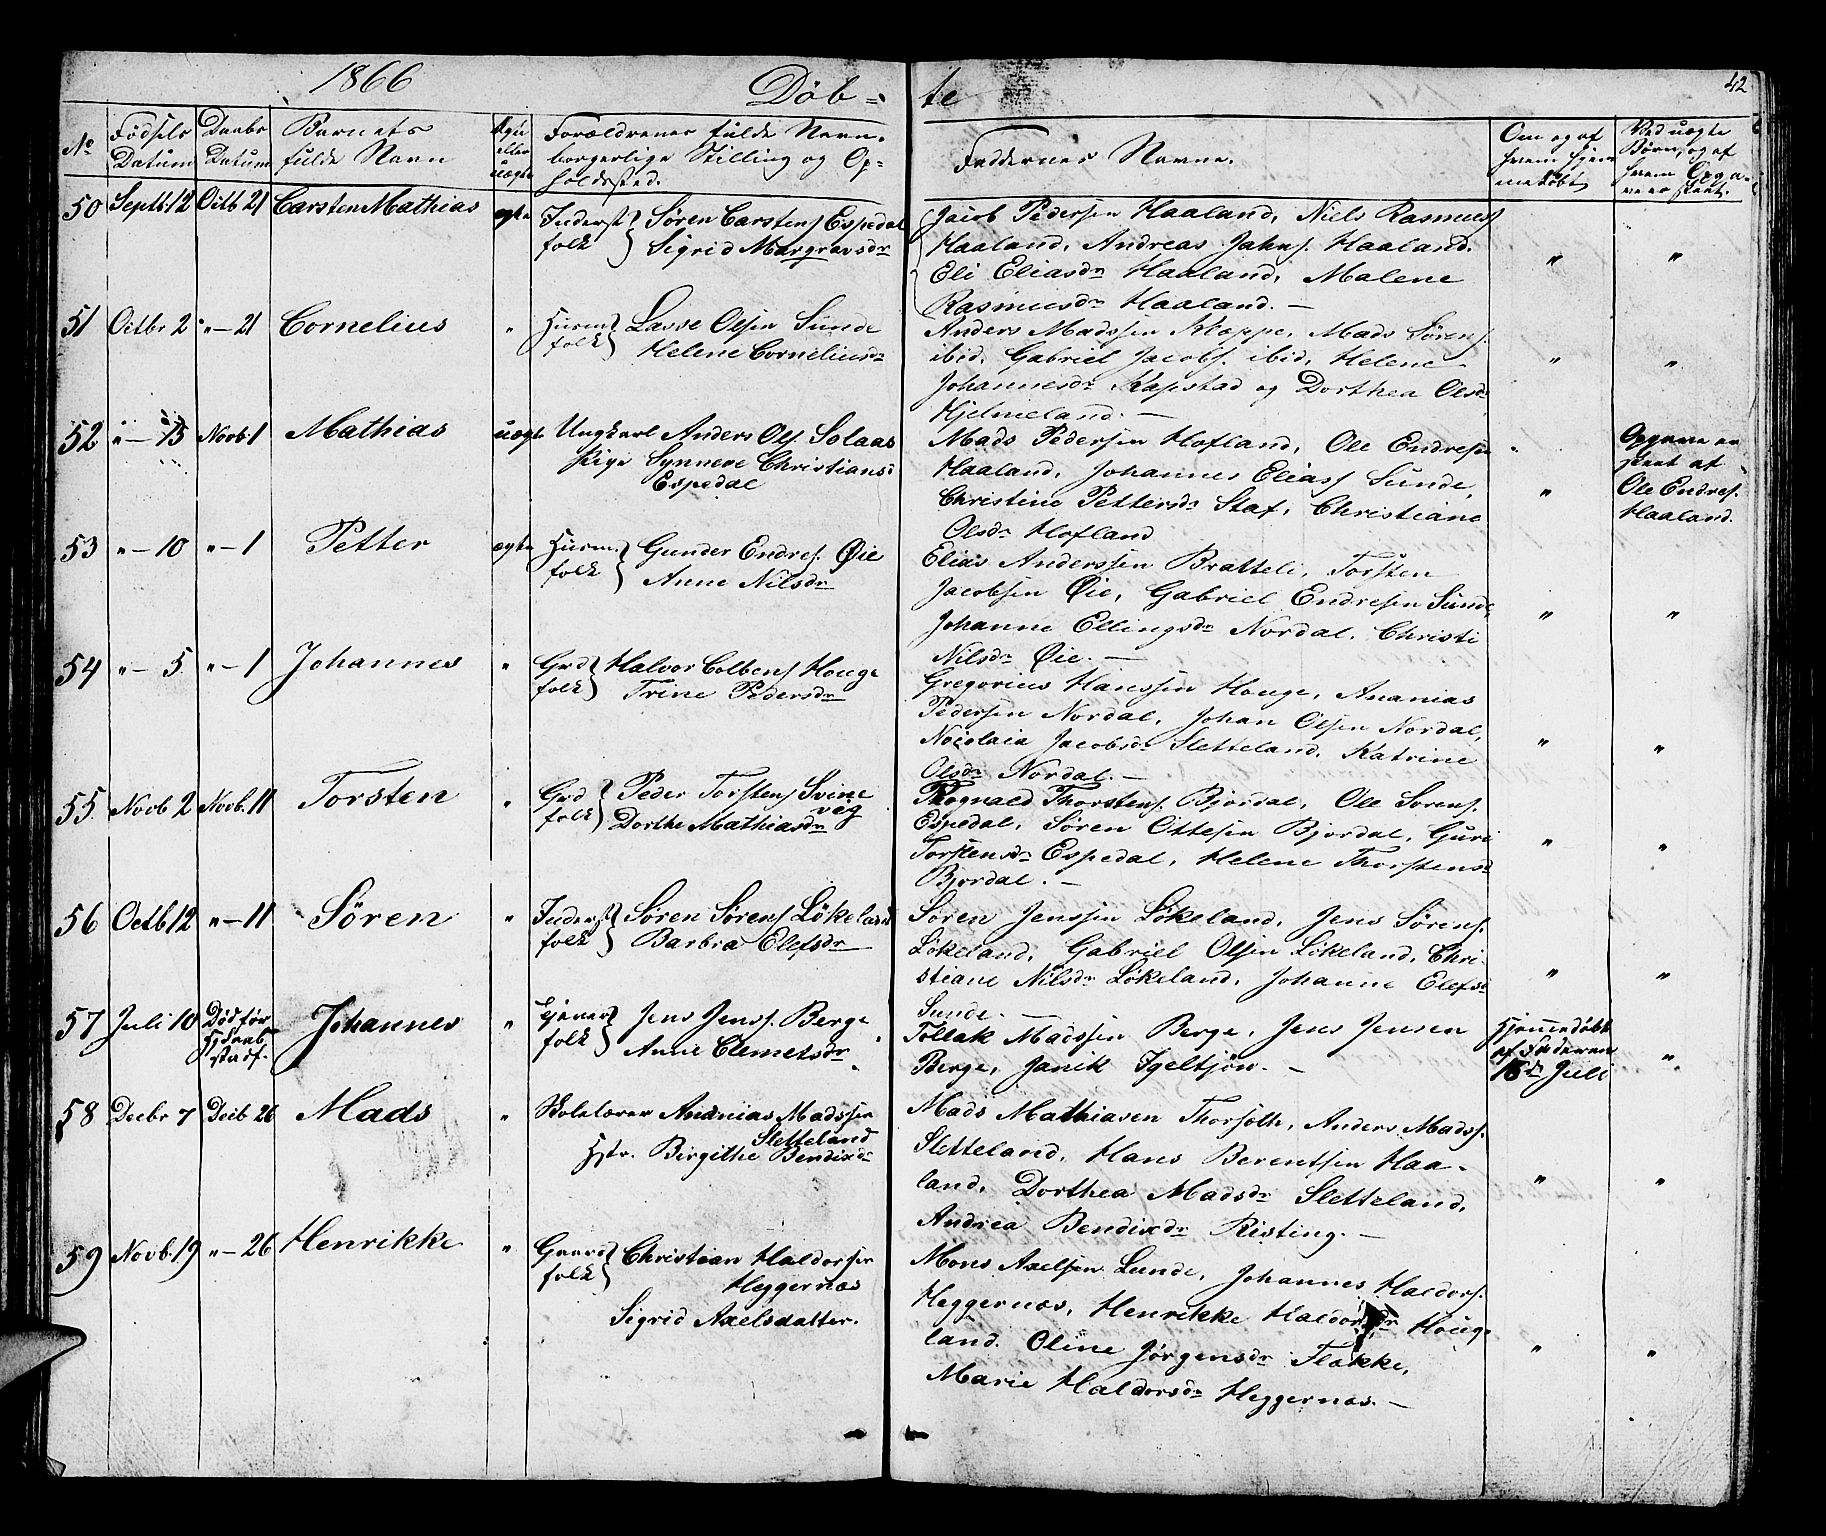 1866 Døb= te 42
No Fødsels Datum Daabs Datum Barnets fulde Navn Ægte eller uægte Forældrenes fulde Navn, borgerlige Stilling og Opholdssted. Faddernes Navne. Om og af hvem hjemmedøbt Ved uægte Børn, og af hvem Opgave er skeet.
50 Septb. 12 Octb 21 Carsten Mathias ægte Inderstfolk } Søren Carstens Espedal
Sigrid Margravsdr
Jacob Pedersen Haaland, Niels Rasmuss
Haaland, Andreas Jahns. Haaland.
Eli Eliasdr Haaland, Malene
Rasmusdr Haaland. —
" "
51 Octbr 2 "—21 Cornelius " Husmfolk } Lasse Olsen Sunde
Helene Corneliusdr
Anders Madssen Kleppe, Mads Sørens.
ibid, Gabriel Jacobs. ibid, Helene
Johannesdr Kapstad og Dorthea Olsdr
Hjelmeland. —
" "
52 "—15 Novb. 1 Mathias uægte Ungkarl Anders Ols. Solaas
Pige Synneve Christiansd
Espedal
Mads Pedersen Hofland, Ole Endresen
Haaland, Johannes Eliass Sunde,
Christine Pettersdr Staf, Christiane
Olsdr Hofland
" Opgave er
skeet af
Ole Endres.
Haaland.
53 "—10 "—1 Petter ægte Husmfolk } Gunder Endres. Øie
Anne Nilsdr
Elias Anderssen Bratteli, Torsten
Jacobsen Øie, Gabriel Endresen Sunde,
Johanne Ellingsdr Nordal. Christi
Nilsdr Øie. —
" "
54 "—5 "—1 Johannes " Grdfolk } Halvor Colbens Houge
Trine Pedersdr
Gregorius Hanssen Houge, Ananias
Pedersen Nordal, Johan Olsen Nordal,
Nicolaia Jacobsdr Sletteland, Katrine
Olsdr Nordal. —
" "
55. Novb 2 Novb. 11 Torsten " Grdfolk } Peder Torstens Svine
vig
Dorthe Mathiasdr
Thognald Thorstens. Bjordal, Ole Sorens.
Espedal, Søren Ottesen Bjordal, Guri
Torstensdr Espedal, Helene Thorstensd
Bjordal. —
" "
56 Octb 12 "—11 Søren " Inderstfolk } Søren Sørens Lökeland
Barbra Elefsdr
Søren Jenssen Lökeland, Jens Sørens.
Lökeland, Gabriel Olsen Lökeland, Chri-
stiane Nilsdr Lökeland, Johanne Elefsd
Sunde. —
" "
57 Juli 10 Død før
Hjdaab
stadf. Johannes " Tjenerfolk } Jens Jens. Berge
Anne Clemetsdr
Tollak Madssen Berge, Jens Jensen
Berge, Janik Igeltjøn. —
Hjemmedøbt
af Faderen
15de Juli "
58 Decbr 7 Decb 26 Mads " Skolelærer Ananias Madssen
Sletteland
Hstr. Birgithe Bendixdr
Mads Mathiasen Thorsoth, Anders Madss.
Sletteland, Hans Berentsen Haa-
land, Dorthea Madsdr Sletteland,
Andrea Bendixdr Risting. —
" "
59 Novb. 19 "—26 Henrikke " Gaardfolk } Christian Haldorsen
Heggernæs
Sigrid Axelsdatter.
Mons Axelsen Lunde, Johannes Haldors.
Heggernæs, Henrikke Haldorsdr Houge
land. Oline Jørgensdr Flække,
Marie Haldorsdr Heggernæs. —
" "